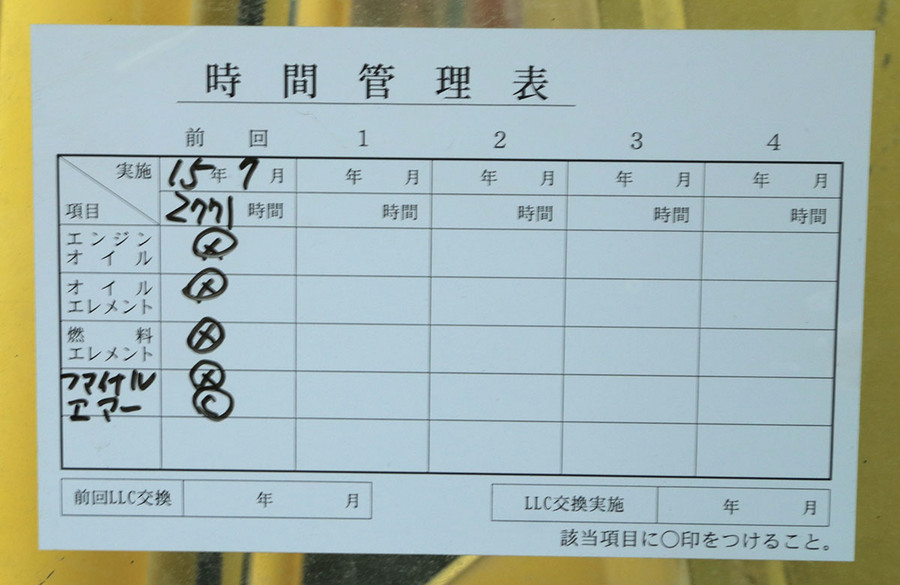 時間管理表
前回 1 2 3 4
実施 15年7月 年 月 年 月 年 月 年 月
項目 2771時間 時間 時間 時間 時間
エンジン
オイル ⊗
オイル
エレメント ⊗
燃料
エレメント ⊗
ファイナル ⊗
エアー
前回LLC交換 年 月 LLC交換実施 年 月
該当項目に〇印をつけること。